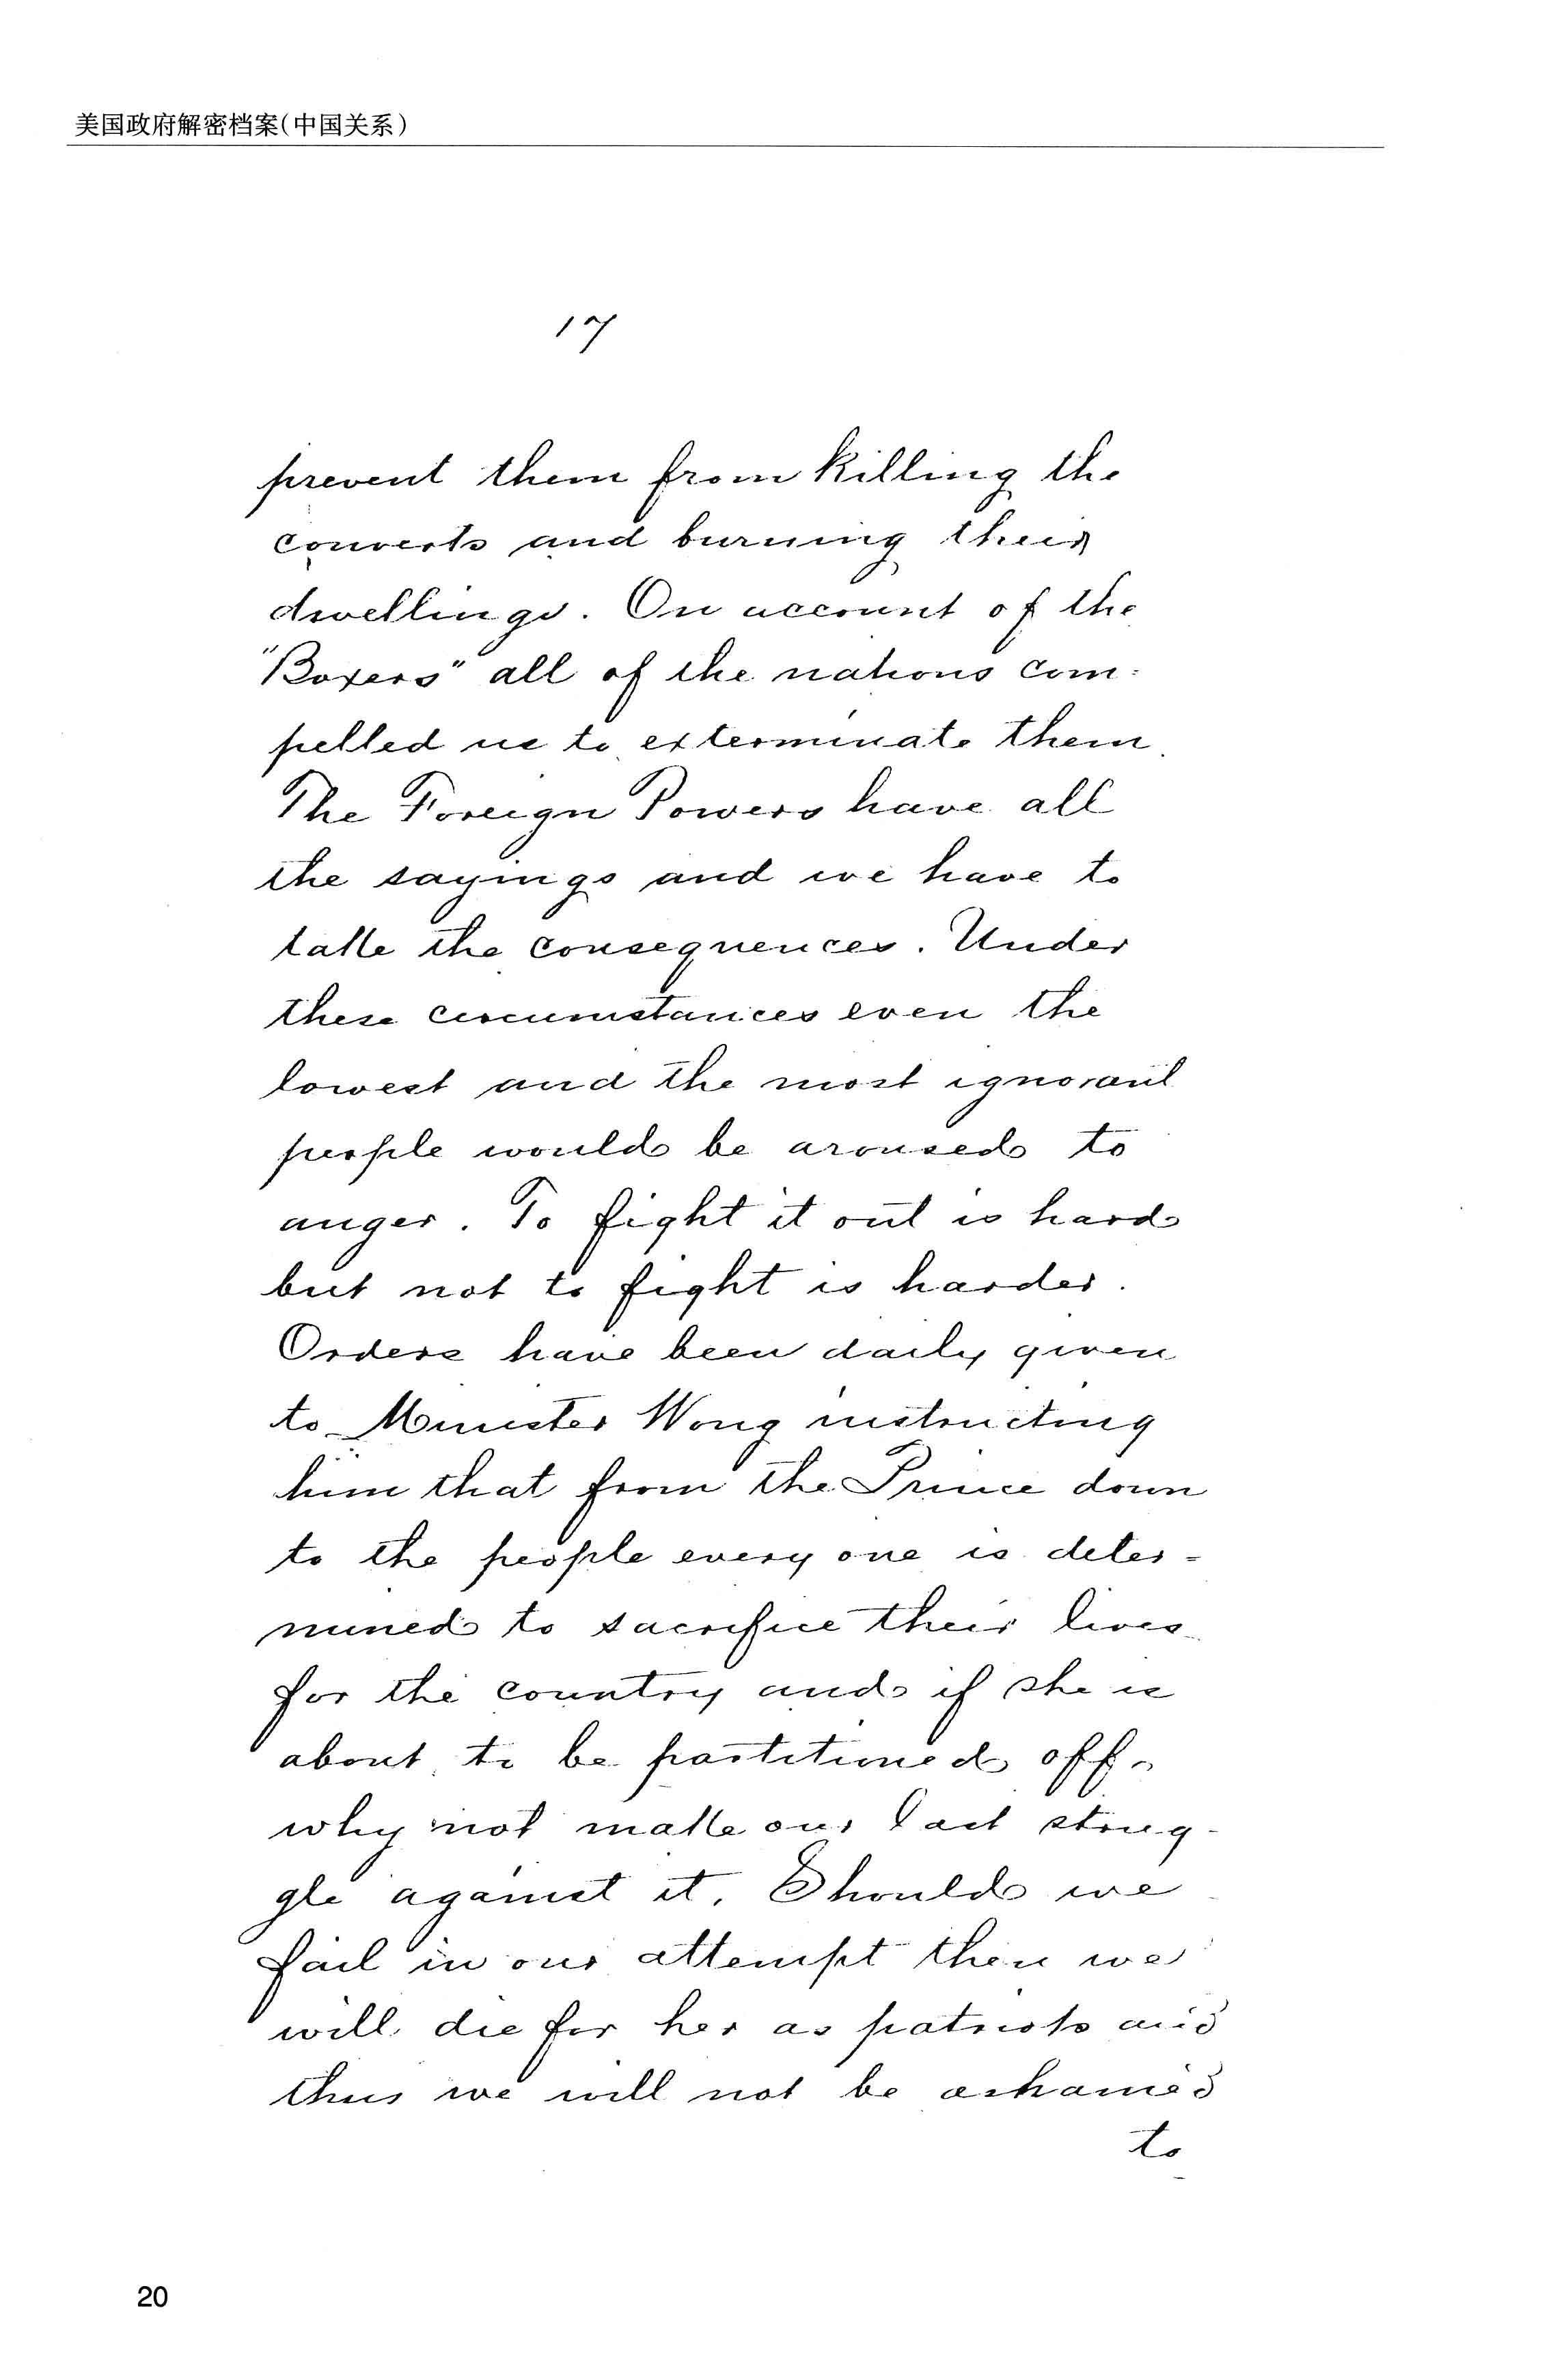 美国政府解密档案(中国关系)
17
prevent them from killing the
converts and burning their
dwellings. On account of the
"Boxers" all of the nations com-
pelled us to exterminate them.
The Foreign Powers have all
the sayings and we have to
take the consequences. Under
these circumstances even the
lowest and the most ignorant
people would be aroused to
anger. To fight it out is hard
but not to fight is harder.
Orders have been daily given
to Minister Wong instructing
him that from the Prince down
to the people every one is deter-
mined to sacrifice their lives
for the country and if she is
about to be partitioned off,
why not make our last strug-
gle against it. Should we
fail in our attempt then we
will die for her as patriots and
thus we will not be ashamed
to
20